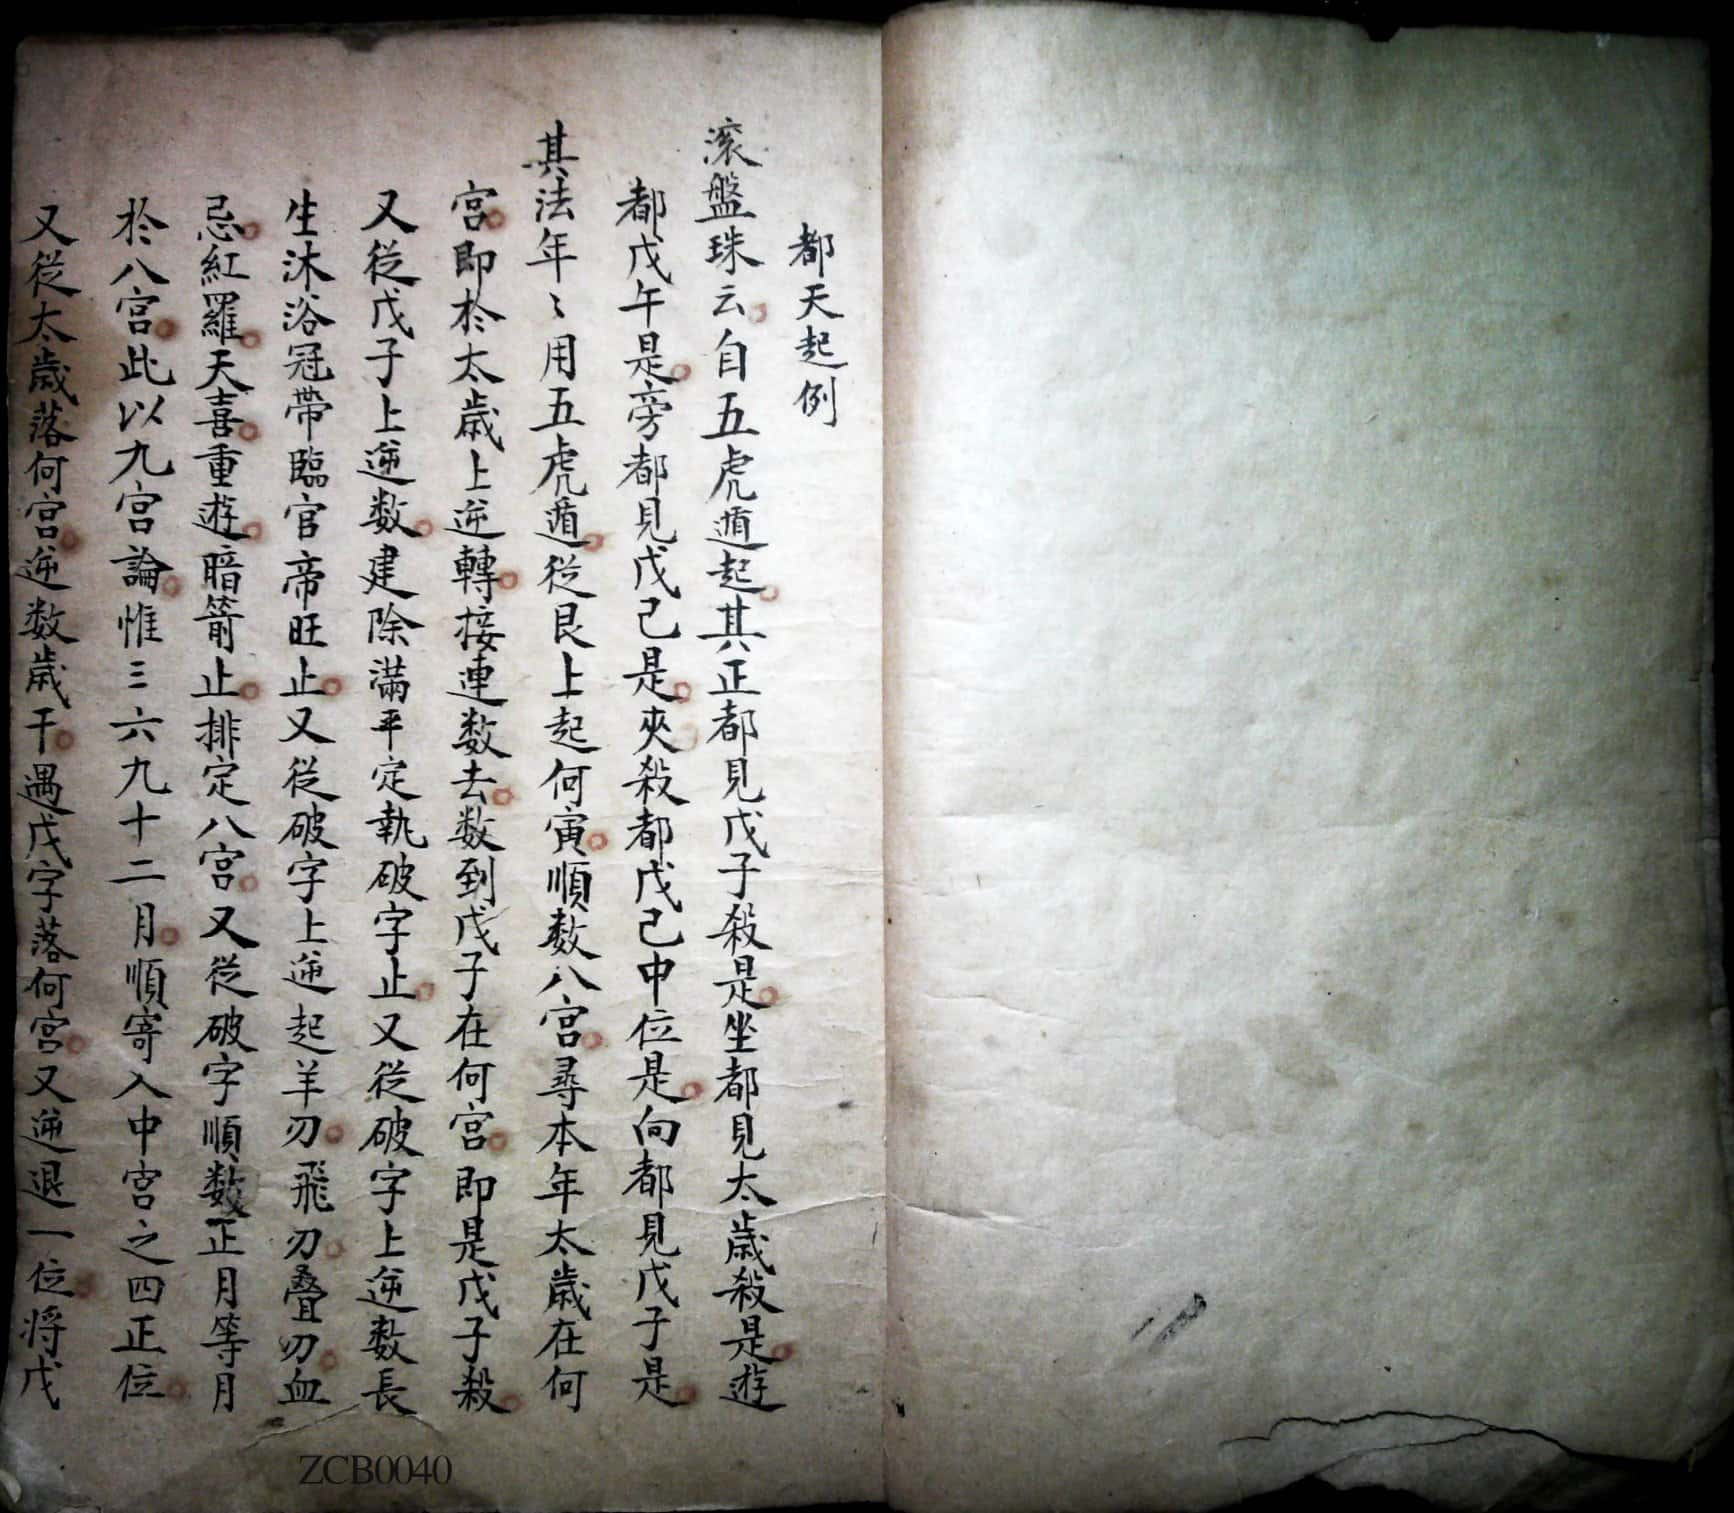 都天起例
滚盤珠云自五虎遁起其正都見戊子殺是坐都見太歲殺是遊
都戊午是旁都見戊己是夾殺都戊己中位是向都見戊子是
其法年〻用五虎遁從艮上起何寅順数八宮尋本年太歲在何
宮即於太歲上逆轉接連数去数到戊子在何宮即是戊子殺
又從戊子上逆数建除滿平定執破字止又從破字上逆数長
生沐浴冠帶臨官帝旺止又從破字上逆起羊刃飛刃疊刃血
忌紅羅天喜重遊暗箭止排定八宮又從破字順数正月等月
於八宮此以九宮論惟三六九十二月順寄入中宮之四正位
又從太歲落何宮逆数歲干遇戊字落何宮又逆退一位將戊
ZCB0040